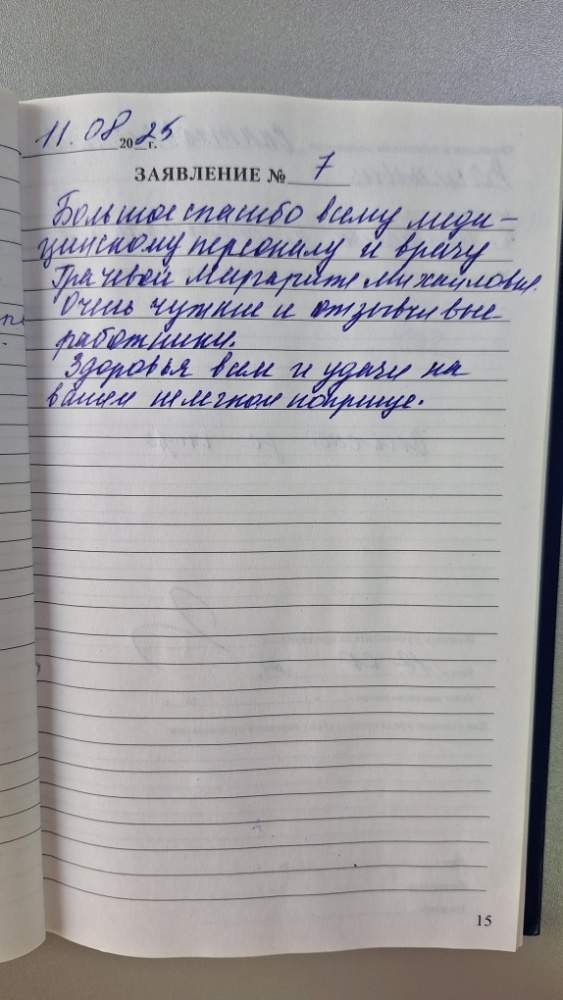 11.08.2025 г.
ЗАЯВЛЕНИЕ № 7
Большое спасибо всему меди-
цинскому персоналу и врачу
Грачевой Маргарите Михайловне.
Очень чуткие и отзывчивые
работники.
Здоровья вам и удачи на
вашем нелегком поприще.
15